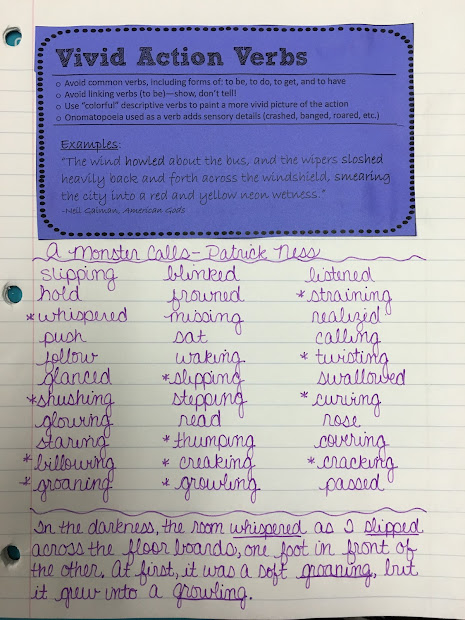 Vivid Action Verbs
o Avoid common verbs, including forms of: to be, to do, to get, and to have
o Avoid linking verbs (to be)—show, don't tell!
o Use "colorful" descriptive verbs to paint a more vivid picture of the action
o Onomatopoeia used as a verb adds sensory details (crashed, banged, roared, etc.)
Examples:
"The wind howled about the bus, and the wipers sloshed
heavily back and forth across the windshield, smearing
the city into a red and yellow neon wetness."
-Neil Gaiman, American Gods
A Monster Calls - Patrick Ness
slipping blinked listened
hold frowned *straining
*whispered missing realizid
push sat calling
follow waking *twisting
glanced *slipping swallowed
*shushing stepping *curving
glowing read rose
staring *thumping covering
*billowing *creaking *cracking
*groaning *growling passed
In the darkness, the room whispered as I slipped
across the floor boards, one foot in front of
the other. At first, it was a soft groaning, but
it grew into a growling.